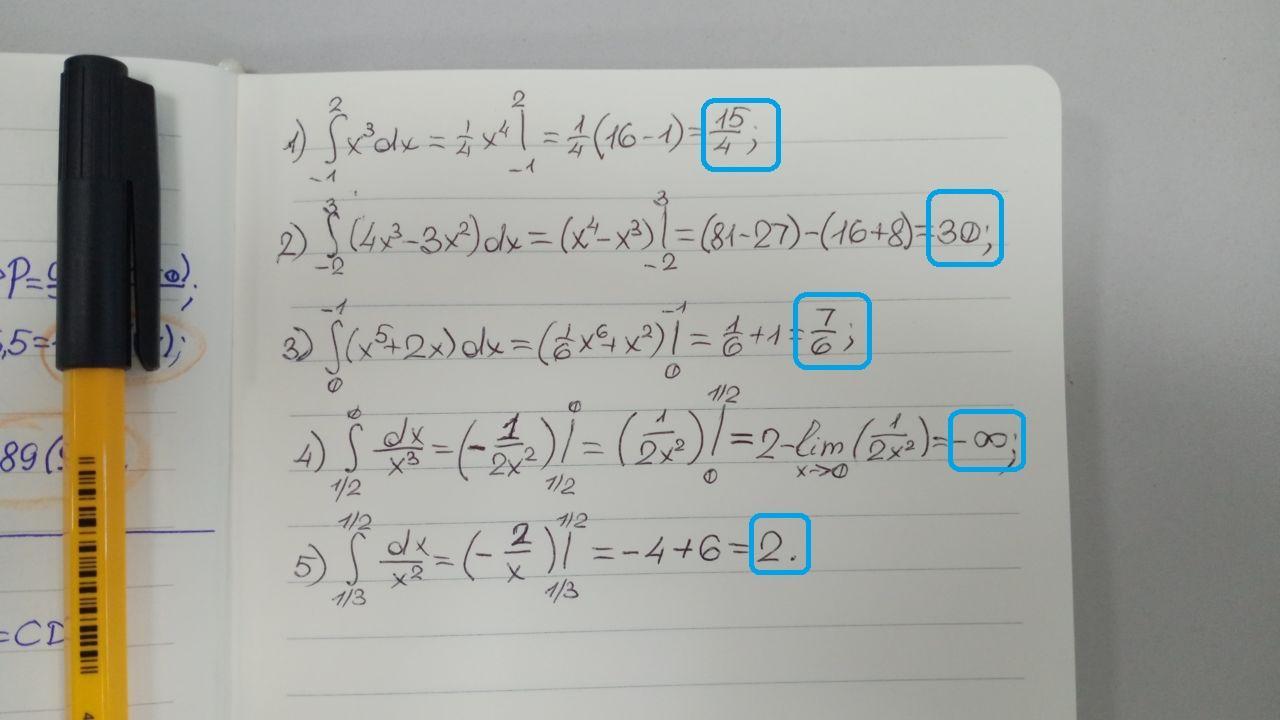 1) ∫_{-1}^{2} x³dx = 1/4 x⁴ |_{-1}^{2} = 1/4 (16-1) = 15/4;
2) ∫_{-2}^{3} (4x³-3x²)dx = (x⁴-x³) |_{-2}^{3} = (81-27)-(16+8) = 30;
3) ∫_{0}^{-1} (x⁵+2x)dx = (1/6 x⁶+x²) |_{0}^{-1} = 1/6 + 1 = 7/6;
4) ∫_{1/2}^{0} dx/x³ = (-1/2x²) |_{1/2}^{0} = (1/2x²) |_{0}^{1/2} = 2 - lim_{x→0} (1/2x²) = -∞;
5) ∫_{1/3}^{1/2} dx/x² = (-2/x) |_{1/3}^{1/2} = -4+6 = 2.
P=
5,5=
89(
=CD